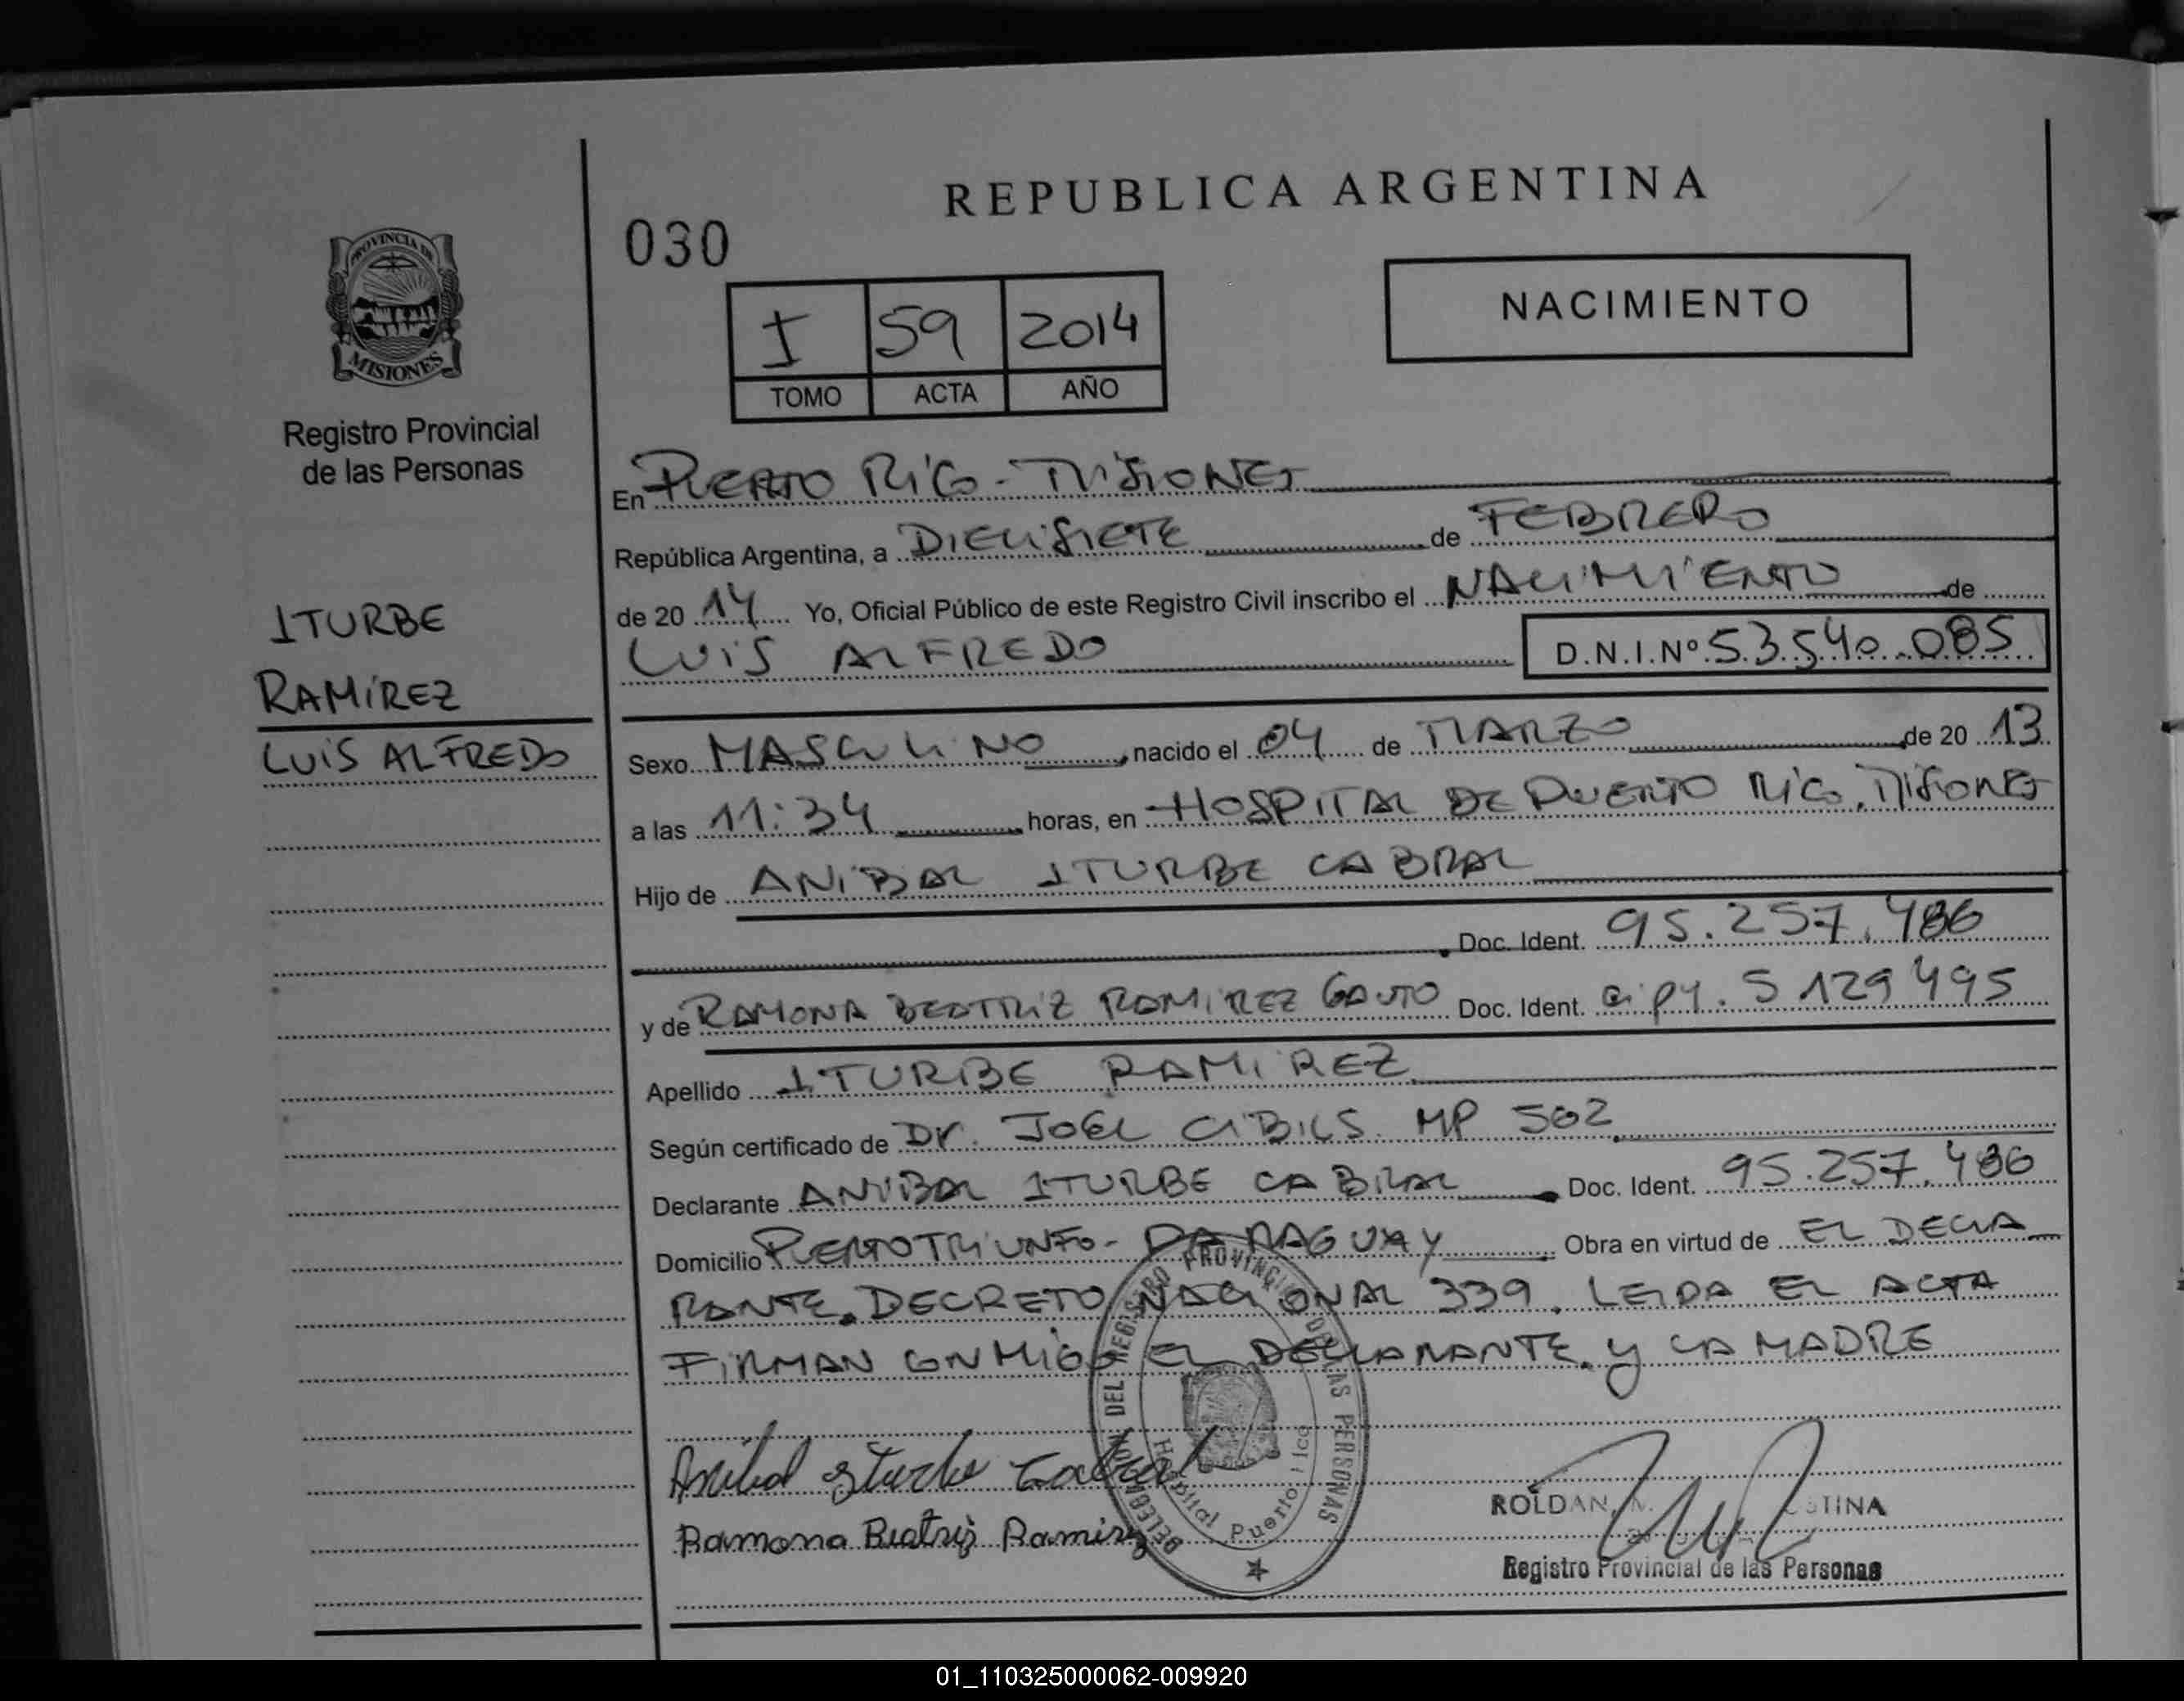 REPUBLICA ARGENTINA
030
PROVINCIA DE
MISIONES
Registro Provincial
de las Personas
I 59 2014
TOMO ACTA AÑO
NACIMIENTO
ITURBE
RAMÍREZ
LUIS ALFREDO
En PUERTO RICO - MISIONES
República Argentina, a DIECISIETE de FEBRERO
de 20 14 Yo, Oficial Público de este Registro Civil inscribo el NACIMIENTO de
LUIS ALFREDO D.N.I.Nº 53.540.085
Sexo MASCULINO, nacido el 04 de MARZO de 20 13
a las 11:34 horas, en HOSPITAL DE PUERTO RICO, MISIONES
Hijo de ANIBAL ITURBE CABRAL
Doc. Ident. 95.257.486
y de RAMONA BEATRIZ RAMIREZ GAUTO Doc. Ident. ci py. 5129495
Apellido ITURBE RAMIREZ
Según certificado de Dr. JOEL CIBILS MP 502
Declarante ANIBAL ITURBE CABRAL Doc. Ident. 95.257.486
Domicilio PUERTO TRIUNFO - PARAGUAY Obra en virtud de EL DECLA
RANTE. DECRETO NACIONAL 339. LEIDA EL ACTA
FIRMAN CONMIGO EL DECLARANTE y LA MADRE
Anibal Iturbe Cabral
Ramona Beatriz Ramirez
DELEGACION DEL REGISTRO PROVINCIAL DE LAS PERSONAS
Hospital Puerto Rico
ROLDAN
Registro Provincial de las Personas
01_110325000062-009920